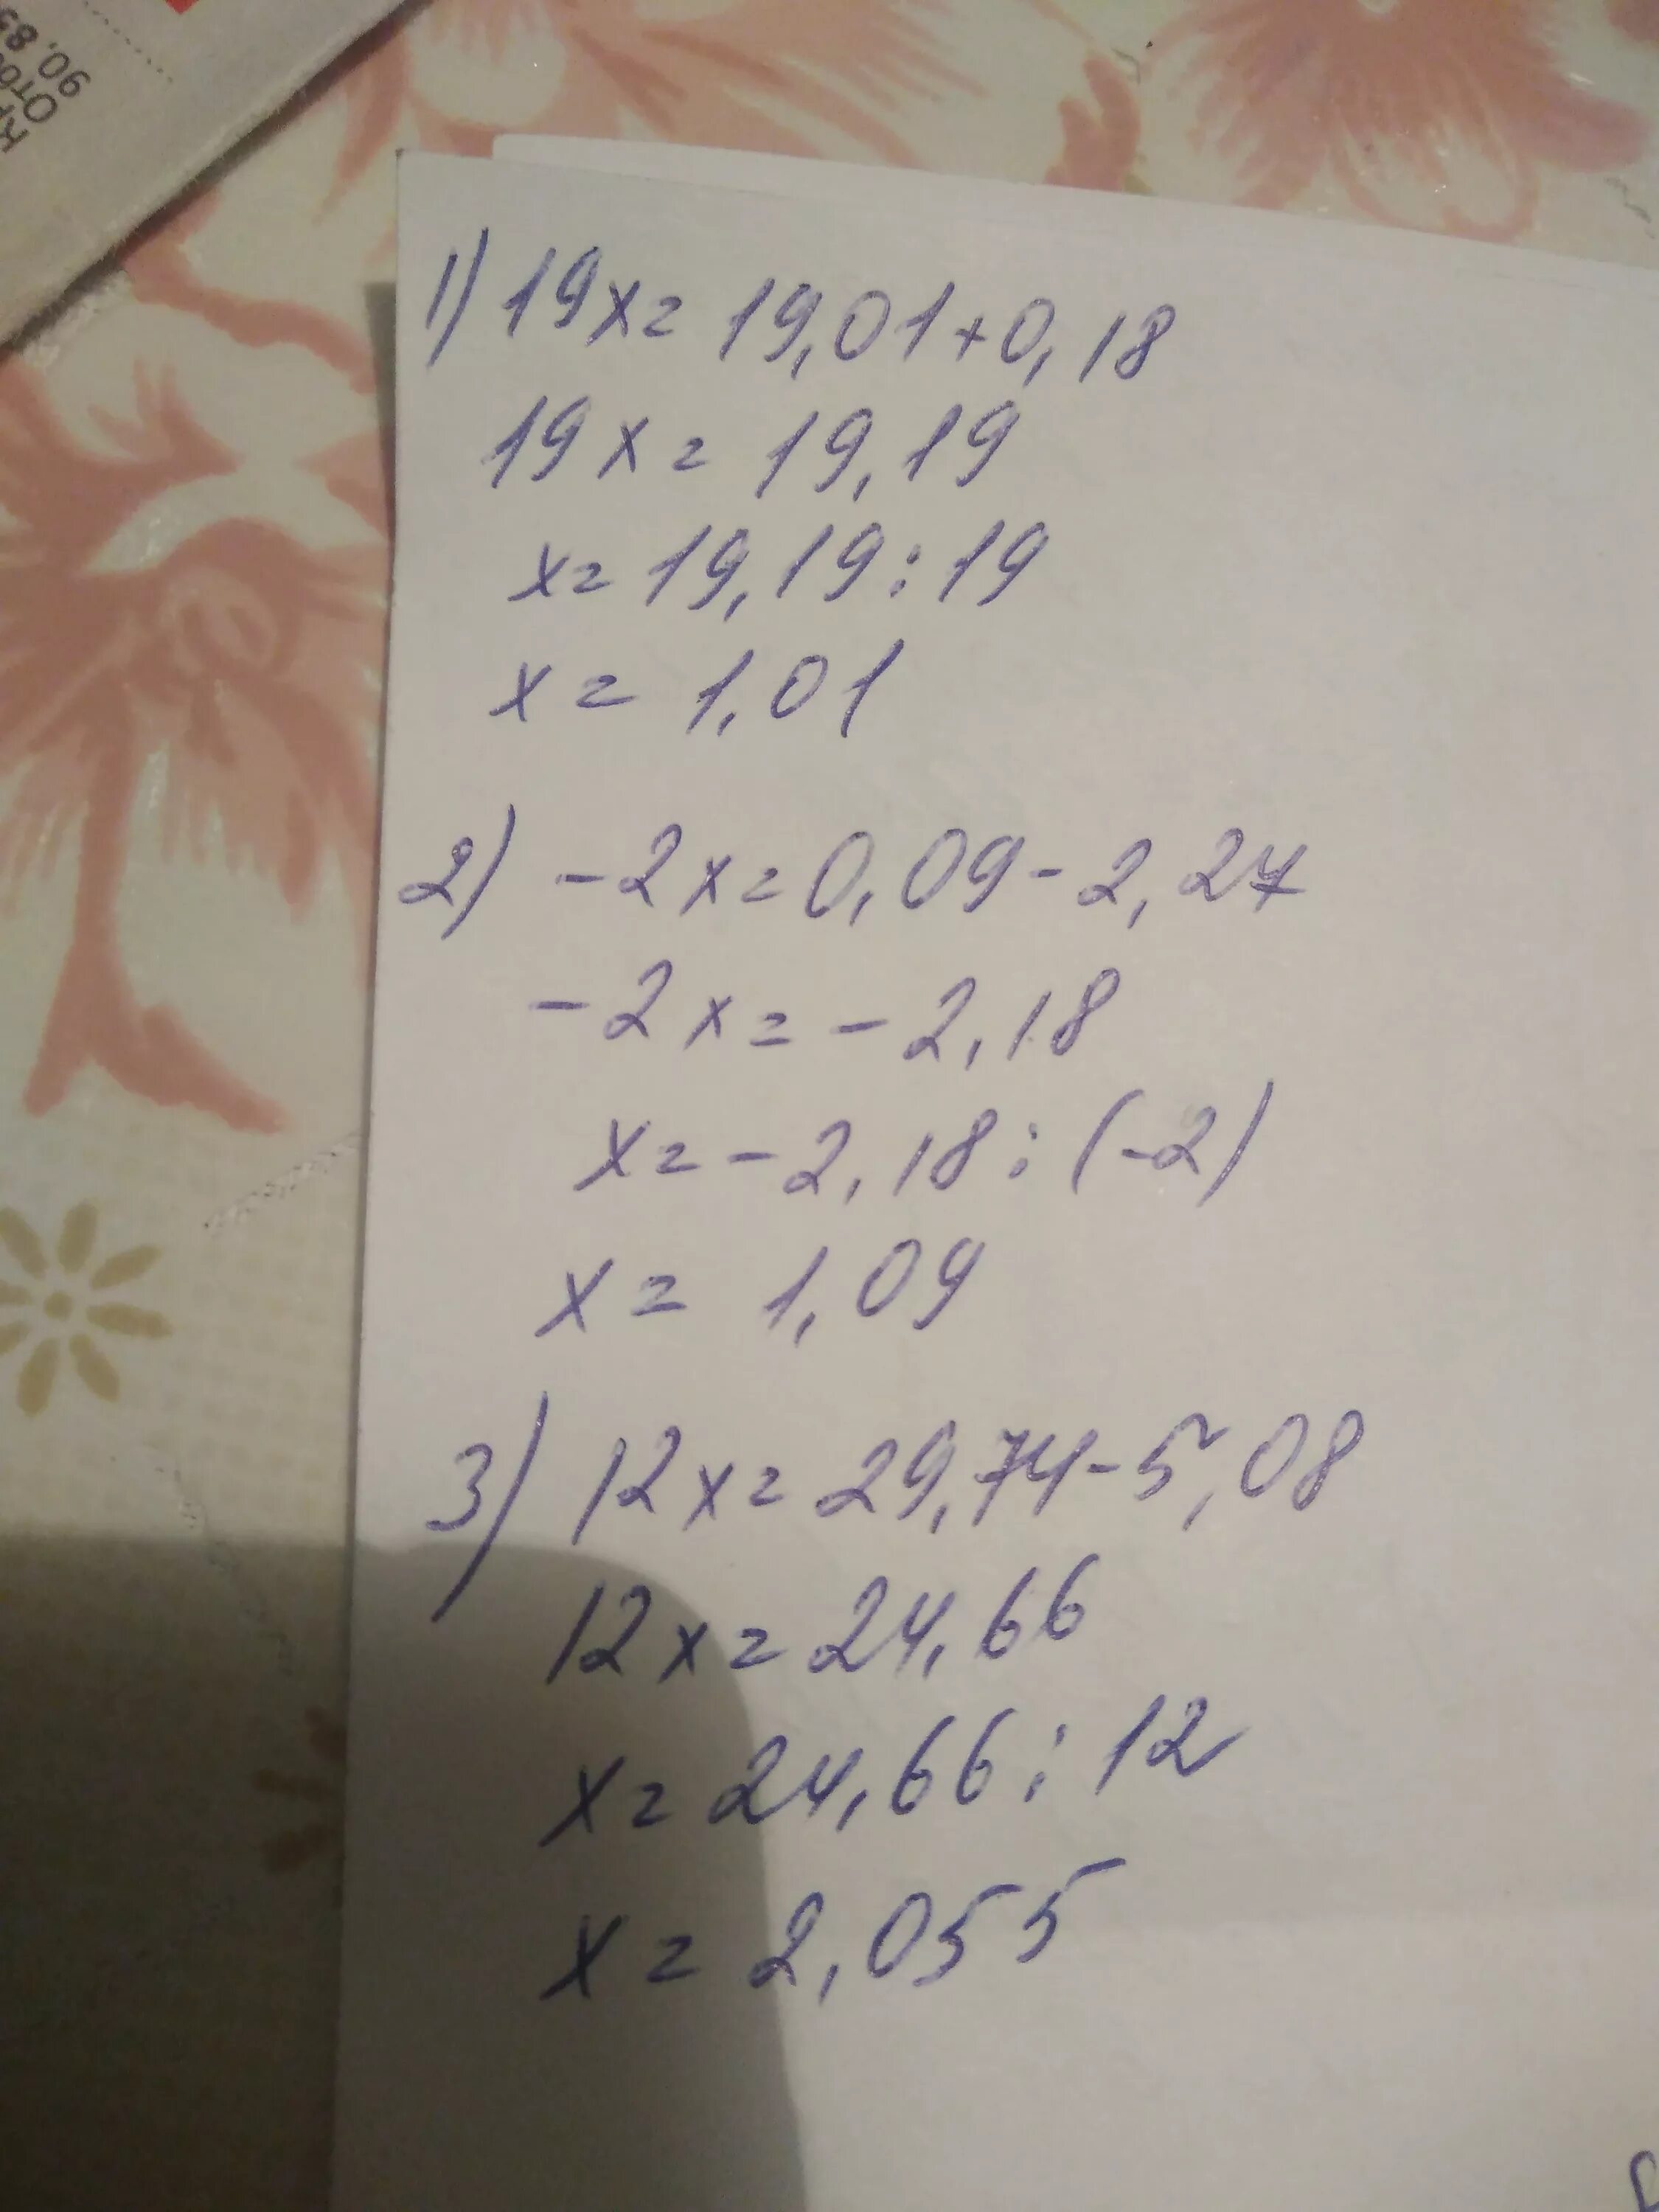 1) 19x = 19,01 + 0,18
19x = 19,19
x = 19,19 : 19
x = 1,01
2) -2x = 0,09 - 2,27
-2x = -2,18
x = -2,18 : (-2)
x = 1,09
3) 12x = 29,74 - 5,08
12x = 24,66
x = 24,66 : 12
x = 2,055